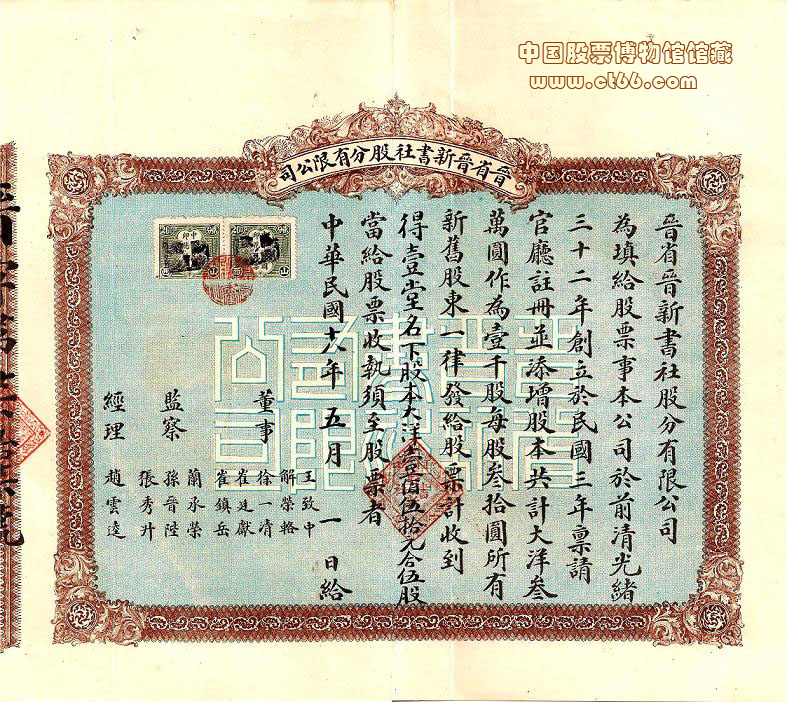 中国股票博物馆馆藏
www.ct66.com
晉省晉新書社股分有限公司
晉省晉新書社股分有限公司
為填給股票事本公司於前清光緒
三十二年創立於民國三年稟請
官廳註冊並添增股本共計大洋叁
萬圓作為壹千股每股叁拾圓所有
新舊股東一律發給股票計收到
得壹堂名下股本大洋壹佰伍拾元合伍股
當給股票收執須至股票者
中華民國十八年五月一日給
董事
王致中
解榮輅
徐一清
崔廷獻
崔鎮岳
監察
蘭承榮
孫晉陞
張秀升
經理
趙雲逵